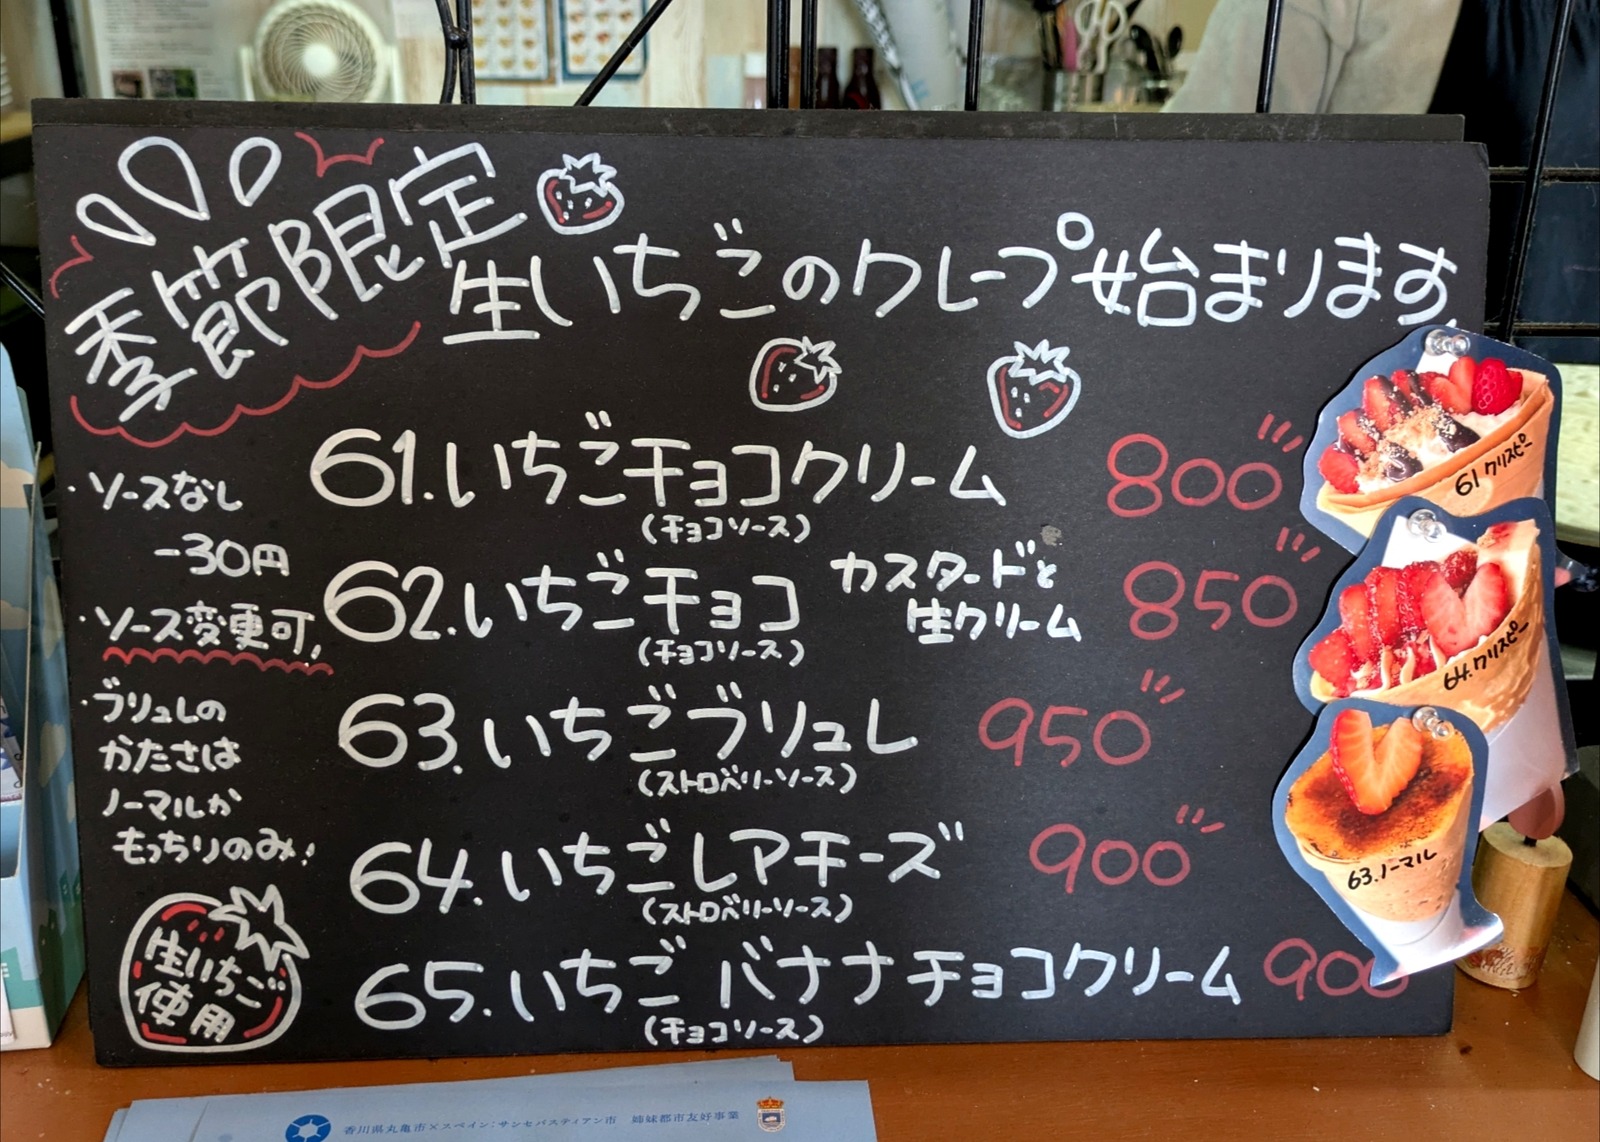 季節限定
生いちごのクレープ始まります。
・ソースなし
-30円
・ソース変更可。
・ブリュレの
かたさは
ノーマルか
もっちりのみ!
生いちご
使用
61.いちごチョコクリーム 800
(チョコソース)
62.いちごチョコ カスタードと
生クリーム 850
(チョコソース)
63.いちごブリュレ 950
(ストロベリーソース)
64.いちごレアチーズ 900
(ストロベリーソース)
65.いちごバナナチョコクリーム 900
(チョコソース)
61 クリスピー
64.クリスピー
63.ノーマル
香川県丸亀市×スペイン:サンセバスティアン市 姉妹都市友好事業